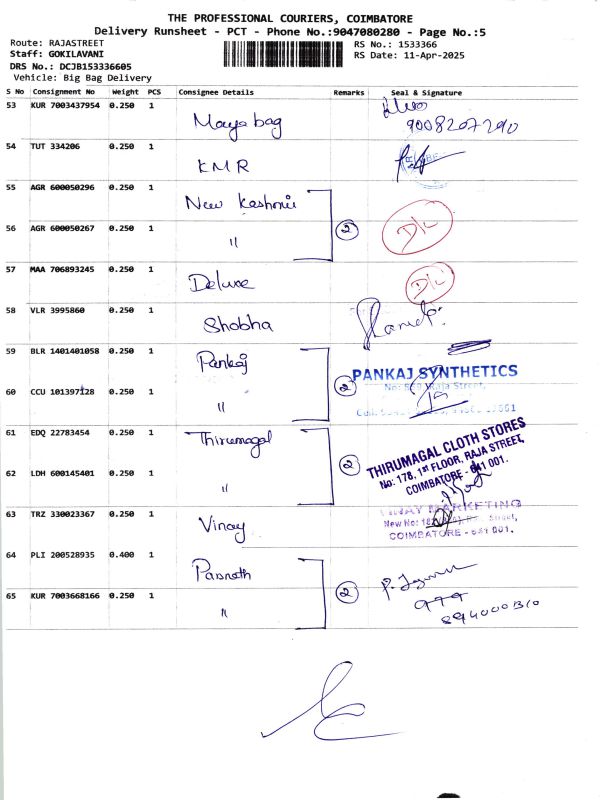 THE PROFESSIONAL COURIERS, COIMBATORE
Delivery Runsheet - PCT - Phone No.:9047080280 - Page No.:5
Route: RAJASTREET
RS No.: 1533366
Staff: GOKILAVANI
RS Date: 11-Apr-2025
DRS No.: DCJB153336605
Vehicle: Big Bag Delivery
S No Consignment No Weight PCS Consignee Details Remarks Seal & Signature
53 KUR 7003437954 0.250 1 Maya bag
9008207290
54 TUT 334206 0.250 1 KMR
55 AGR 600050296 0.250 1 New Kashmir
56 AGR 600050267 0.250 1 " 2 D/L
57 MAA 706893245 0.250 1 Deluxe D/L
58 VLR 3995860 0.250 1 Shobha
59 BLR 1401401058 0.250 1 Pankaj
2 PANKAJ SYNTHETICS
Raja Street,
60 CCU 101397128 0.250 1 "
61 EDQ 22783454 0.250 1 Thirumagal
2 THIRUMAGAL CLOTH STORES
No: 178, 1st FLOOR, RAJA STREET,
COIMBATORE - 641 001.
62 LDH 600145401 0.250 1 "
63 TRZ 330023367 0.250 1 Vinay
MARKETING
New No: Street,
COIMBATORE - 641 001.
64 PLI 200528935 0.400 1 Parsnath
2
65 KUR 7003668166 0.250 1 "